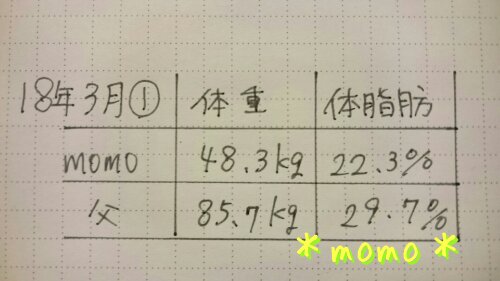 18年3月① 体重 体脂肪
momo 48.3kg 22.3%
父 85.7kg 29.7%
* momo *